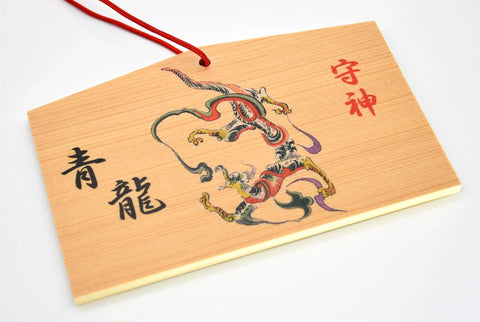 守神
青龍